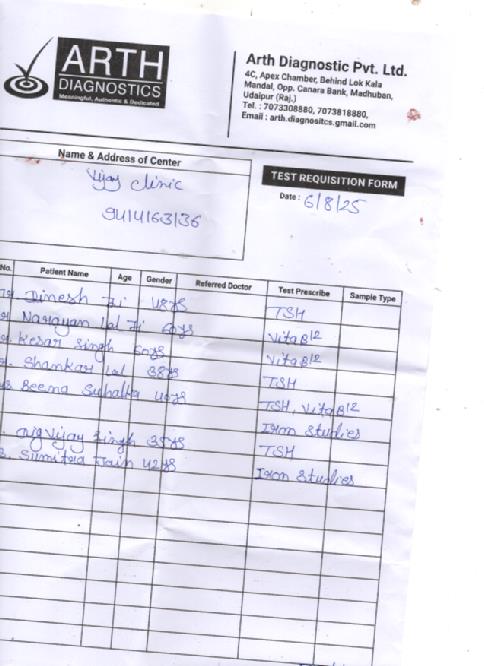 ARTH
DIAGNOSTICS
Meaningful, Authentic & Dedicated
Arth Diagnostic Pvt. Ltd.
4C, Apex Chamber, Behind Lok Kala
Mandal, Opp. Canara Bank, Madhuban,
Udaipur (Raj.)
Tel. : 7073308880, 7073818880,
Email : arth.diagnositcs.gmail.com
Name & Address of Center
Vijay clinic
9414163136
TEST REQUISITION FORM
Date : 6/8/25
No. Patient Name Age Gender Referred Doctor Test Prescribe Sample Type
Dinesh Ji 48yrs TSH
Narayan Lal Ji 60yrs Vita B12
Kesar Singh 60yrs Vita B12
Shankar Lal 38yrs TSH
Beena Suhalka 40yrs TSH, Vita B12
Iron Studies
Vijay Singh 35yrs TSH
Sumitra Jain 42yrs Iron Studies